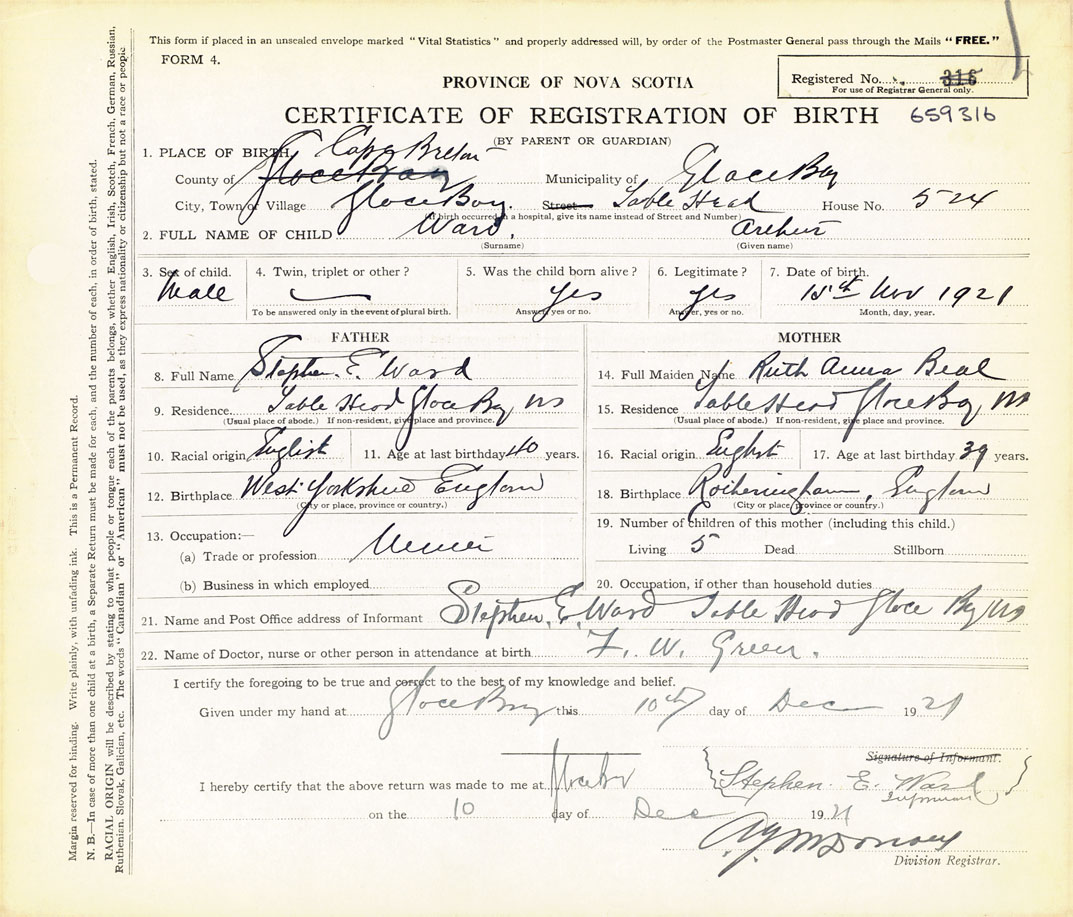 This form if placed in an unsealed envelope marked "Vital Statistics" and properly addressed will, by order of the Postmaster General pass through the Mails "FREE."
FORM 4.
Registered No. 316
For use of Registrar General only.
PROVINCE OF NOVA SCOTIA
CERTIFICATE OF REGISTRATION OF BIRTH 659316
(BY PARENT OR GUARDIAN)
1. PLACE OF BIRTH, Cape Breton
County of Glace Bay Municipality of Glace Bay
City, Town or Village Glace Bay. Street Sable Head House No. 524
(If birth occurred in a hospital, give its name instead of Street and Number)
2. FULL NAME OF CHILD Ward, Arthur
(Surname) (Given name)
3. Sex of child. 4. Twin, triplet or other? 5. Was the child born alive? 6. Legitimate? 7. Date of birth.
Male yes yes 15th Nov 1921
To be answered only in the event of plural birth. Answer, yes or no. Answer, yes or no. Month, day, year.
FATHER MOTHER
8. Full Name Stephen. E. Ward 14. Full Maiden Name Ruth Anna Beal
9. Residence Sable Head Glace Bay NS 15. Residence Sable Head Glace Bay NS
(Usual place of abode.) If non-resident, give place and province. (Usual place of abode.) If non-resident, give place and province.
10. Racial origin English 11. Age at last birthday 40 years. 16. Racial origin English 17. Age at last birthday 39 years.
12. Birthplace West Yorkshire England 18. Birthplace England
(City or place, province or country.) (City or place, province or country.)
13. Occupation:— 19. Number of children of this mother (including this child.)
(a) Trade or profession Miner Living 5 Dead Stillborn
(b) Business in which employed 20. Occupation, if other than household duties
21. Name and Post Office address of Informant Stephen. E. Ward Sable Head Glace Bay NS
22. Name of Doctor, nurse or other person in attendance at birth F. W. Green.
I certify the foregoing to be true and correct to the best of my knowledge and belief.
Given under my hand at Glace Bay this 10th day of Dec 1921
Signature of Informant.
I hereby certify that the above return was made to me at Glace Bay Stephen. E. Ward
Informant
on the 10 day of Dec 1921
Division Registrar.
Margin reserved for binding. Write plainly, with unfading ink. This is a Permanent Record.
N. B.—In case of more than one child at a birth, a Separate Return must be made for each, and the number of each, in order of birth, stated.
RACIAL ORIGIN will be described by stating to what people or tongue each of the parents belongs, whether English, Irish, Scotch, French, German, Russian,
Ruthenian, Slovak, Galician, etc. The words "Canadian" or "American" must not be used, as they express nationality or citizenship but not a race or people